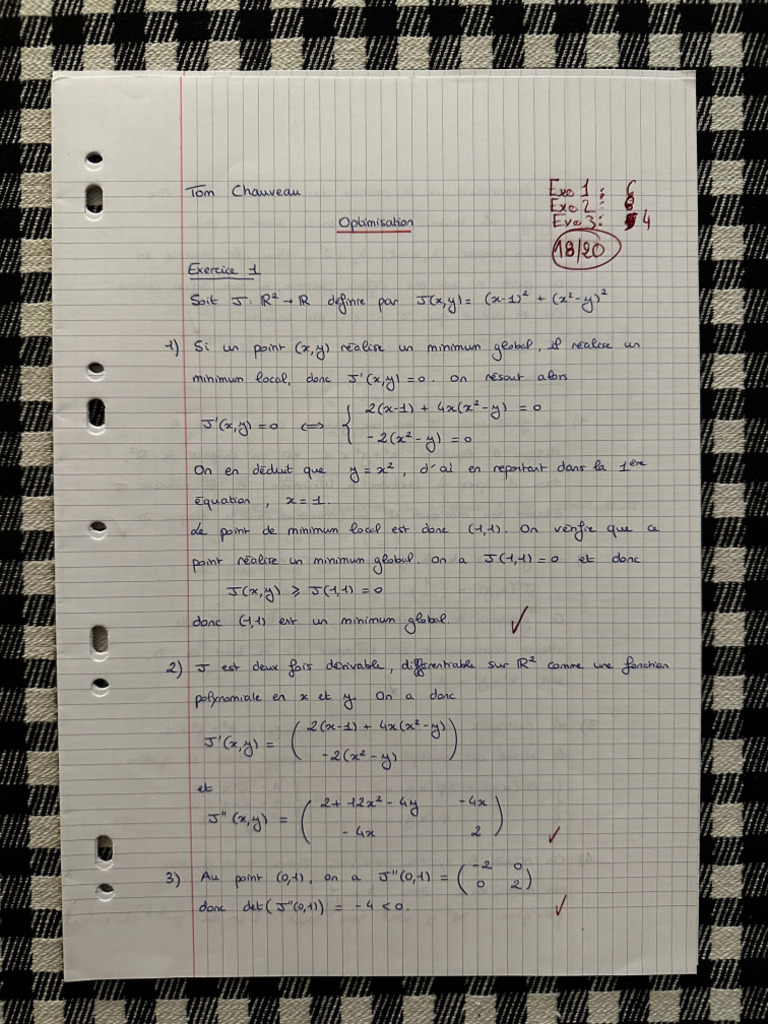 Tom Chauveau
Exo 1 : 6
Exo 2 : 8
Exo 3 : 4
18/20
Optimisation
Exercice 1
Soit J : ℝ² → ℝ définie par J(x,y) = (x-1)² + (x²-y)²
1) Si un point (x,y) réalise un minimum global, il réalise un
minimum local, donc J'(x,y) = 0. On résout alors
J'(x,y) = 0 ⇔ { 2(x-1) + 4x(x²-y) = 0
-2(x²-y) = 0
On en déduit que y = x², d'où en reportant dans la 1ère
équation, x = 1.
Le point de minimum local est donc (1,1). On vérifie que ce
point réalise un minimum global. On a J(1,1) = 0 et donc
J(x,y) ⩾ J(1,1) = 0
donc (1,1) est un minimum global. ✓
2) J est deux fois dérivable, différentiable sur ℝ² comme une fonction
polynomiale en x et y. On a donc
J'(x,y) = ( 2(x-1) + 4x(x²-y)
-2(x²-y) )
et
J''(x,y) = ( 2 + 12x² - 4y   -4x
-4x   2 ) ✓
3) Au point (0,1), on a J''(0,1) = ( -2   0
0   2 )
donc det(J''(0,1)) = -4 < 0. ✓